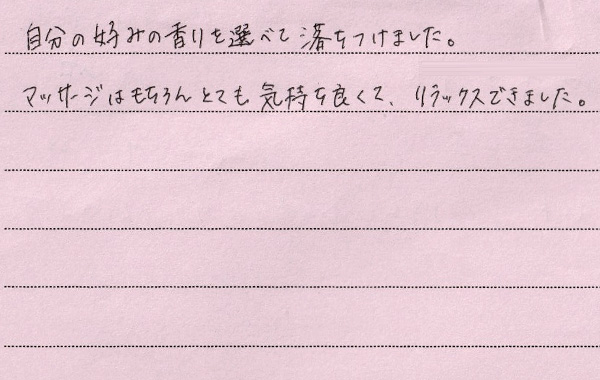 自分の好みの香りを選べて落ちつけました。
マッサージはもちろんとても気持ち良くて、リラックスできました。